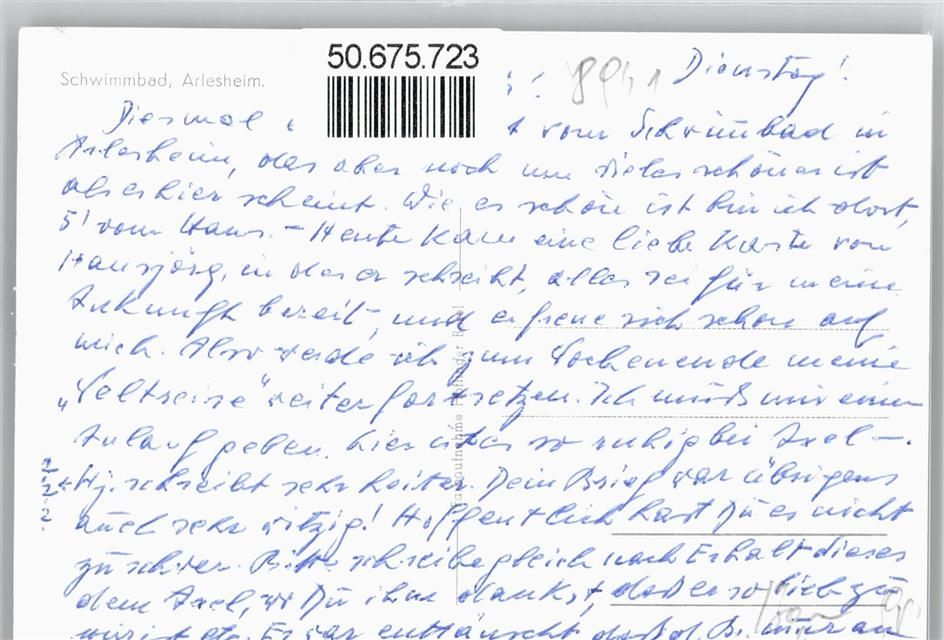 50.675.723
Schwimmbad, Arlesheim.
8941
Dienstag!
Diesmal vom Schwimmbad in
Arlesheim, das aber noch um vieles schöner ist
als es hier scheint. Wie es schön ist bin ich dort,
5' vom Haus. – Heute kam eine liebe Karte von
Hansjörg, in der er schreibt, alles sei für meine
Ankunft bereit, und er freue sich schon auf
mich. Also werde ich zum Wochenende meine
„Weltreise" weiter fortsetzen. Ich muß mir einen
Anlauf geben. Hier ist es so ruhig bei Axel –.
Hj. schreibt sehr heiter. Dein Brief war übrigens
auch sehr witzig! Hoffentlich hast Du es nicht
zu schwer. Bitte schreibe gleich nach Erhalt dieses
dem Axel, wo Du ihm dankst, daß er so lieb zu
mir ist etc. Er war enttäuscht daß d. B. nur an